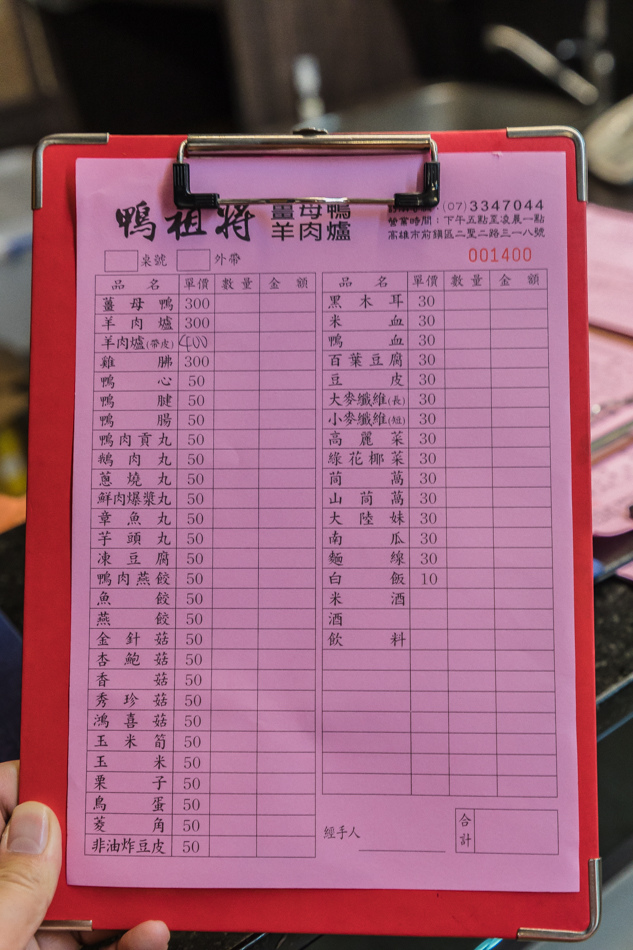 鴨祖將 薑母鴨
羊肉爐
(07)3347044
營業時間：下午五點至凌晨一點
高雄市前鎮區二聖二路三一八號
桌號 外帶
001400
品名 單價 數量 金額
薑母鴨 300
羊肉爐 300
羊肉爐(帶皮) 400
雞胇 300
鴨心 50
鴨腱 50
鴨腸 50
鴨肉貢丸 50
鵝肉丸 50
蔥燒丸 50
鮮肉爆漿丸 50
章魚丸 50
芋頭丸 50
凍豆腐 50
鴨肉燕餃 50
魚餃 50
燕餃 50
金針菇 50
杏鮑菇 50
香菇 50
秀珍菇 50
鴻喜菇 50
玉米筍 50
玉米 50
栗子 50
鳥蛋 50
菱角 50
非油炸豆皮 50
品名 單價 數量 金額
黑木耳 30
米血 30
鴨血 30
百葉豆腐 30
豆皮 30
大麥纖維(長) 30
小麥纖維(短) 30
高麗菜 30
綠花椰菜 30
茼萵 30
山茼萵 30
大陸妹 30
南瓜 30
麵線 30
白飯 10
米酒
酒
飲料
經手人
合計